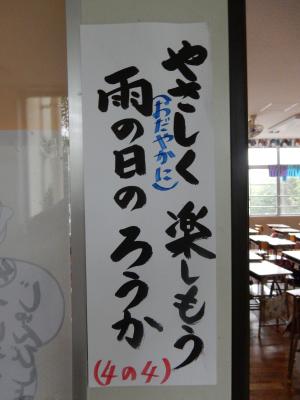 やさしく 楽しもう
(おだやかに)
雨の日の ろうか
(4の4)